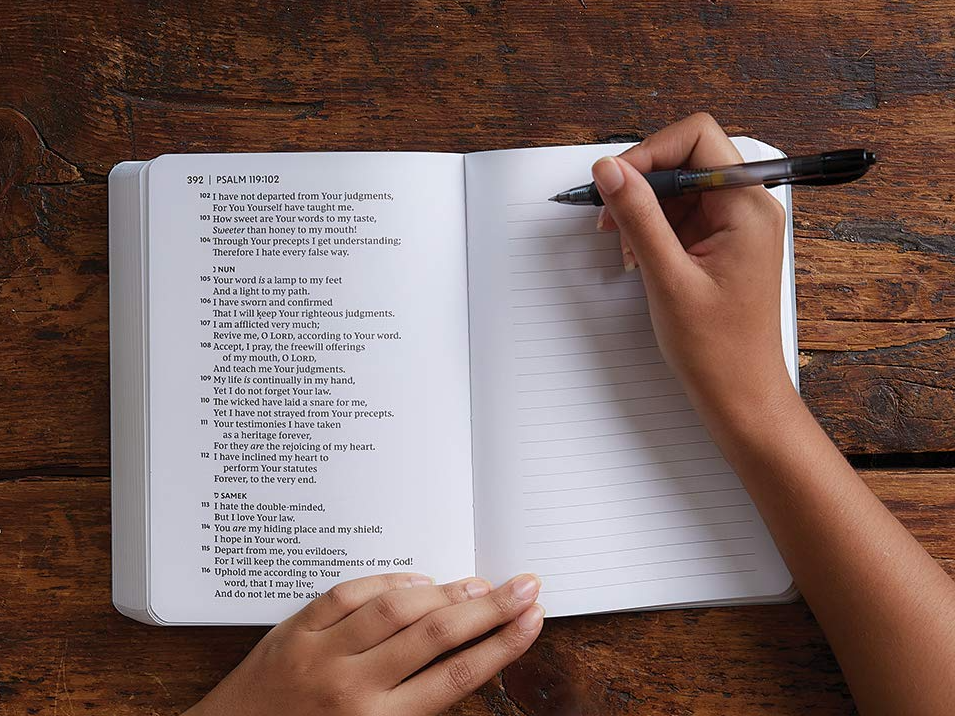 392 | PSALM 119:102
102 I have not departed from Your judgments,
For You Yourself have taught me.
103 How sweet are Your words to my taste,
Sweeter than honey to my mouth!
104 Through Your precepts I get understanding;
Therefore I hate every false way.
נ NUN
105 Your word is a lamp to my feet
And a light to my path.
106 I have sworn and confirmed
That I will keep Your righteous judgments.
107 I am afflicted very much;
Revive me, O LORD, according to Your word.
108 Accept, I pray, the freewill offerings
of my mouth, O LORD,
And teach me Your judgments.
109 My life is continually in my hand,
Yet I do not forget Your law.
110 The wicked have laid a snare for me,
Yet I have not strayed from Your precepts.
111 Your testimonies I have taken
as a heritage forever,
For they are the rejoicing of my heart.
112 I have inclined my heart to
perform Your statutes
Forever, to the very end.
ס SAMEK
113 I hate the double-minded,
But I love Your law.
114 You are my hiding place and my shield;
I hope in Your word.
115 Depart from me, you evildoers,
For I will keep the commandments of my God!
116 Uphold me according to Your
word, that I may live;
And do not let me be